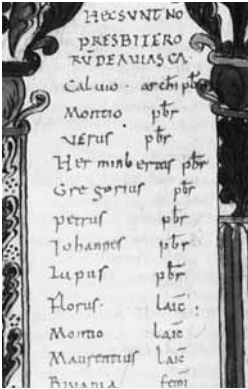 HEC SUNT NO
PRESBITERO
RŪ DE AUIASCA·
Caluio · archi pb̄r
Montio pb̄r
uerus pb̄r
Herminbertus pb̄r
Gregorius pb̄r
petrus pb̄r
Iohannes pb̄r
Lupus pb̄r
Florus· laic̄ :
Montio laic̄
Maurentius laic̄
BIUADIA femī